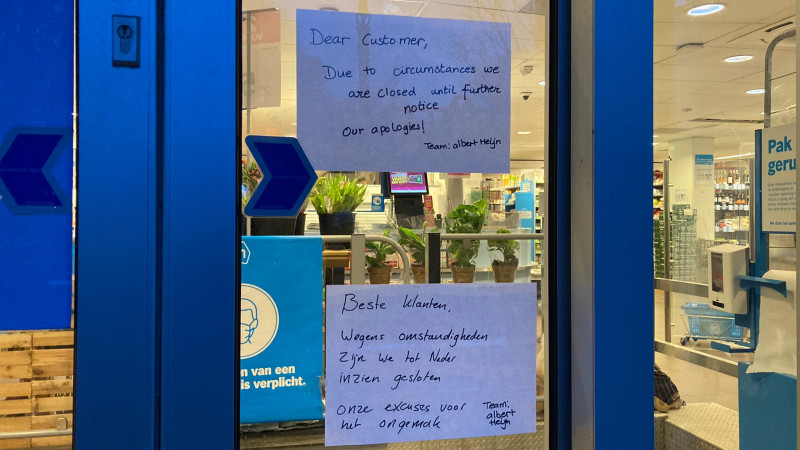 Dear Customer,
Due to circumstances we
are closed until further
notice
Our apologies!
Team: albert Heijn
Beste klanten,
Wegens omstandigheden
Zijn we tot Neder
inzien gesloten
onze excuses voor
het ongemak
Team:
albert
Heijn
en van een
is verplicht.
Pak
geru